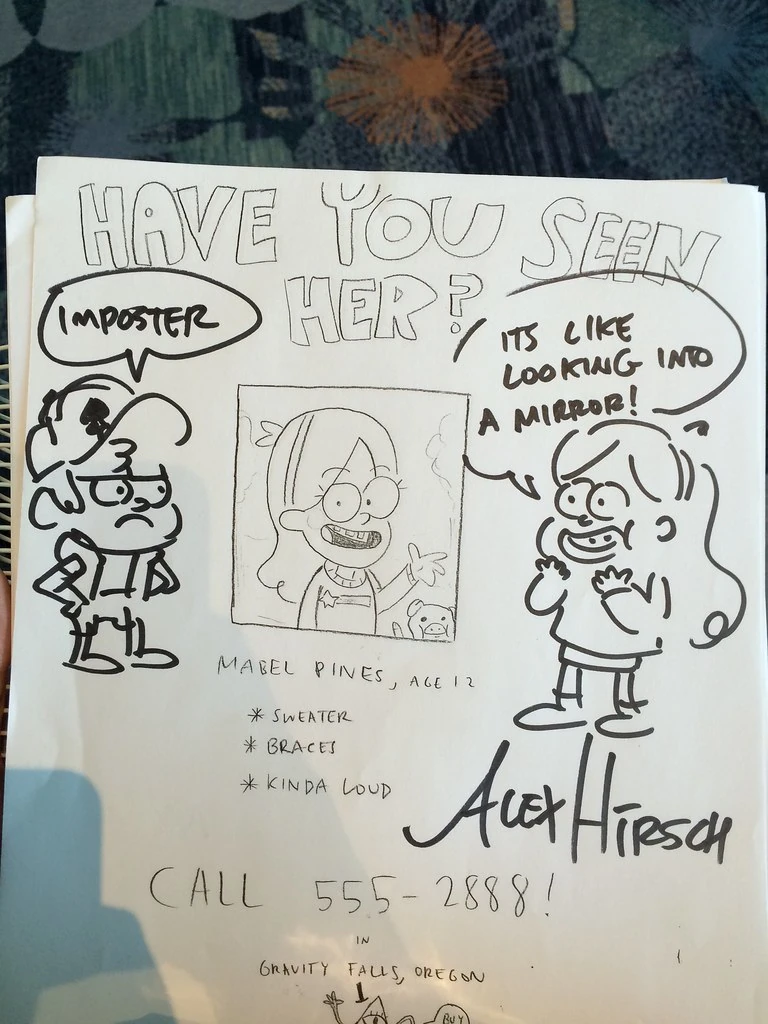 HAVE YOU SEEN
HER?
IMPOSTER
ITS LIKE
LOOKING INTO
A MIRROR!
MABEL PINES, AGE 12
* SWEATER
* BRACES
* KINDA LOUD
ALEX HIRSCH
CALL 555-2888!
IN
GRAVITY FALLS, OREGON
BUY